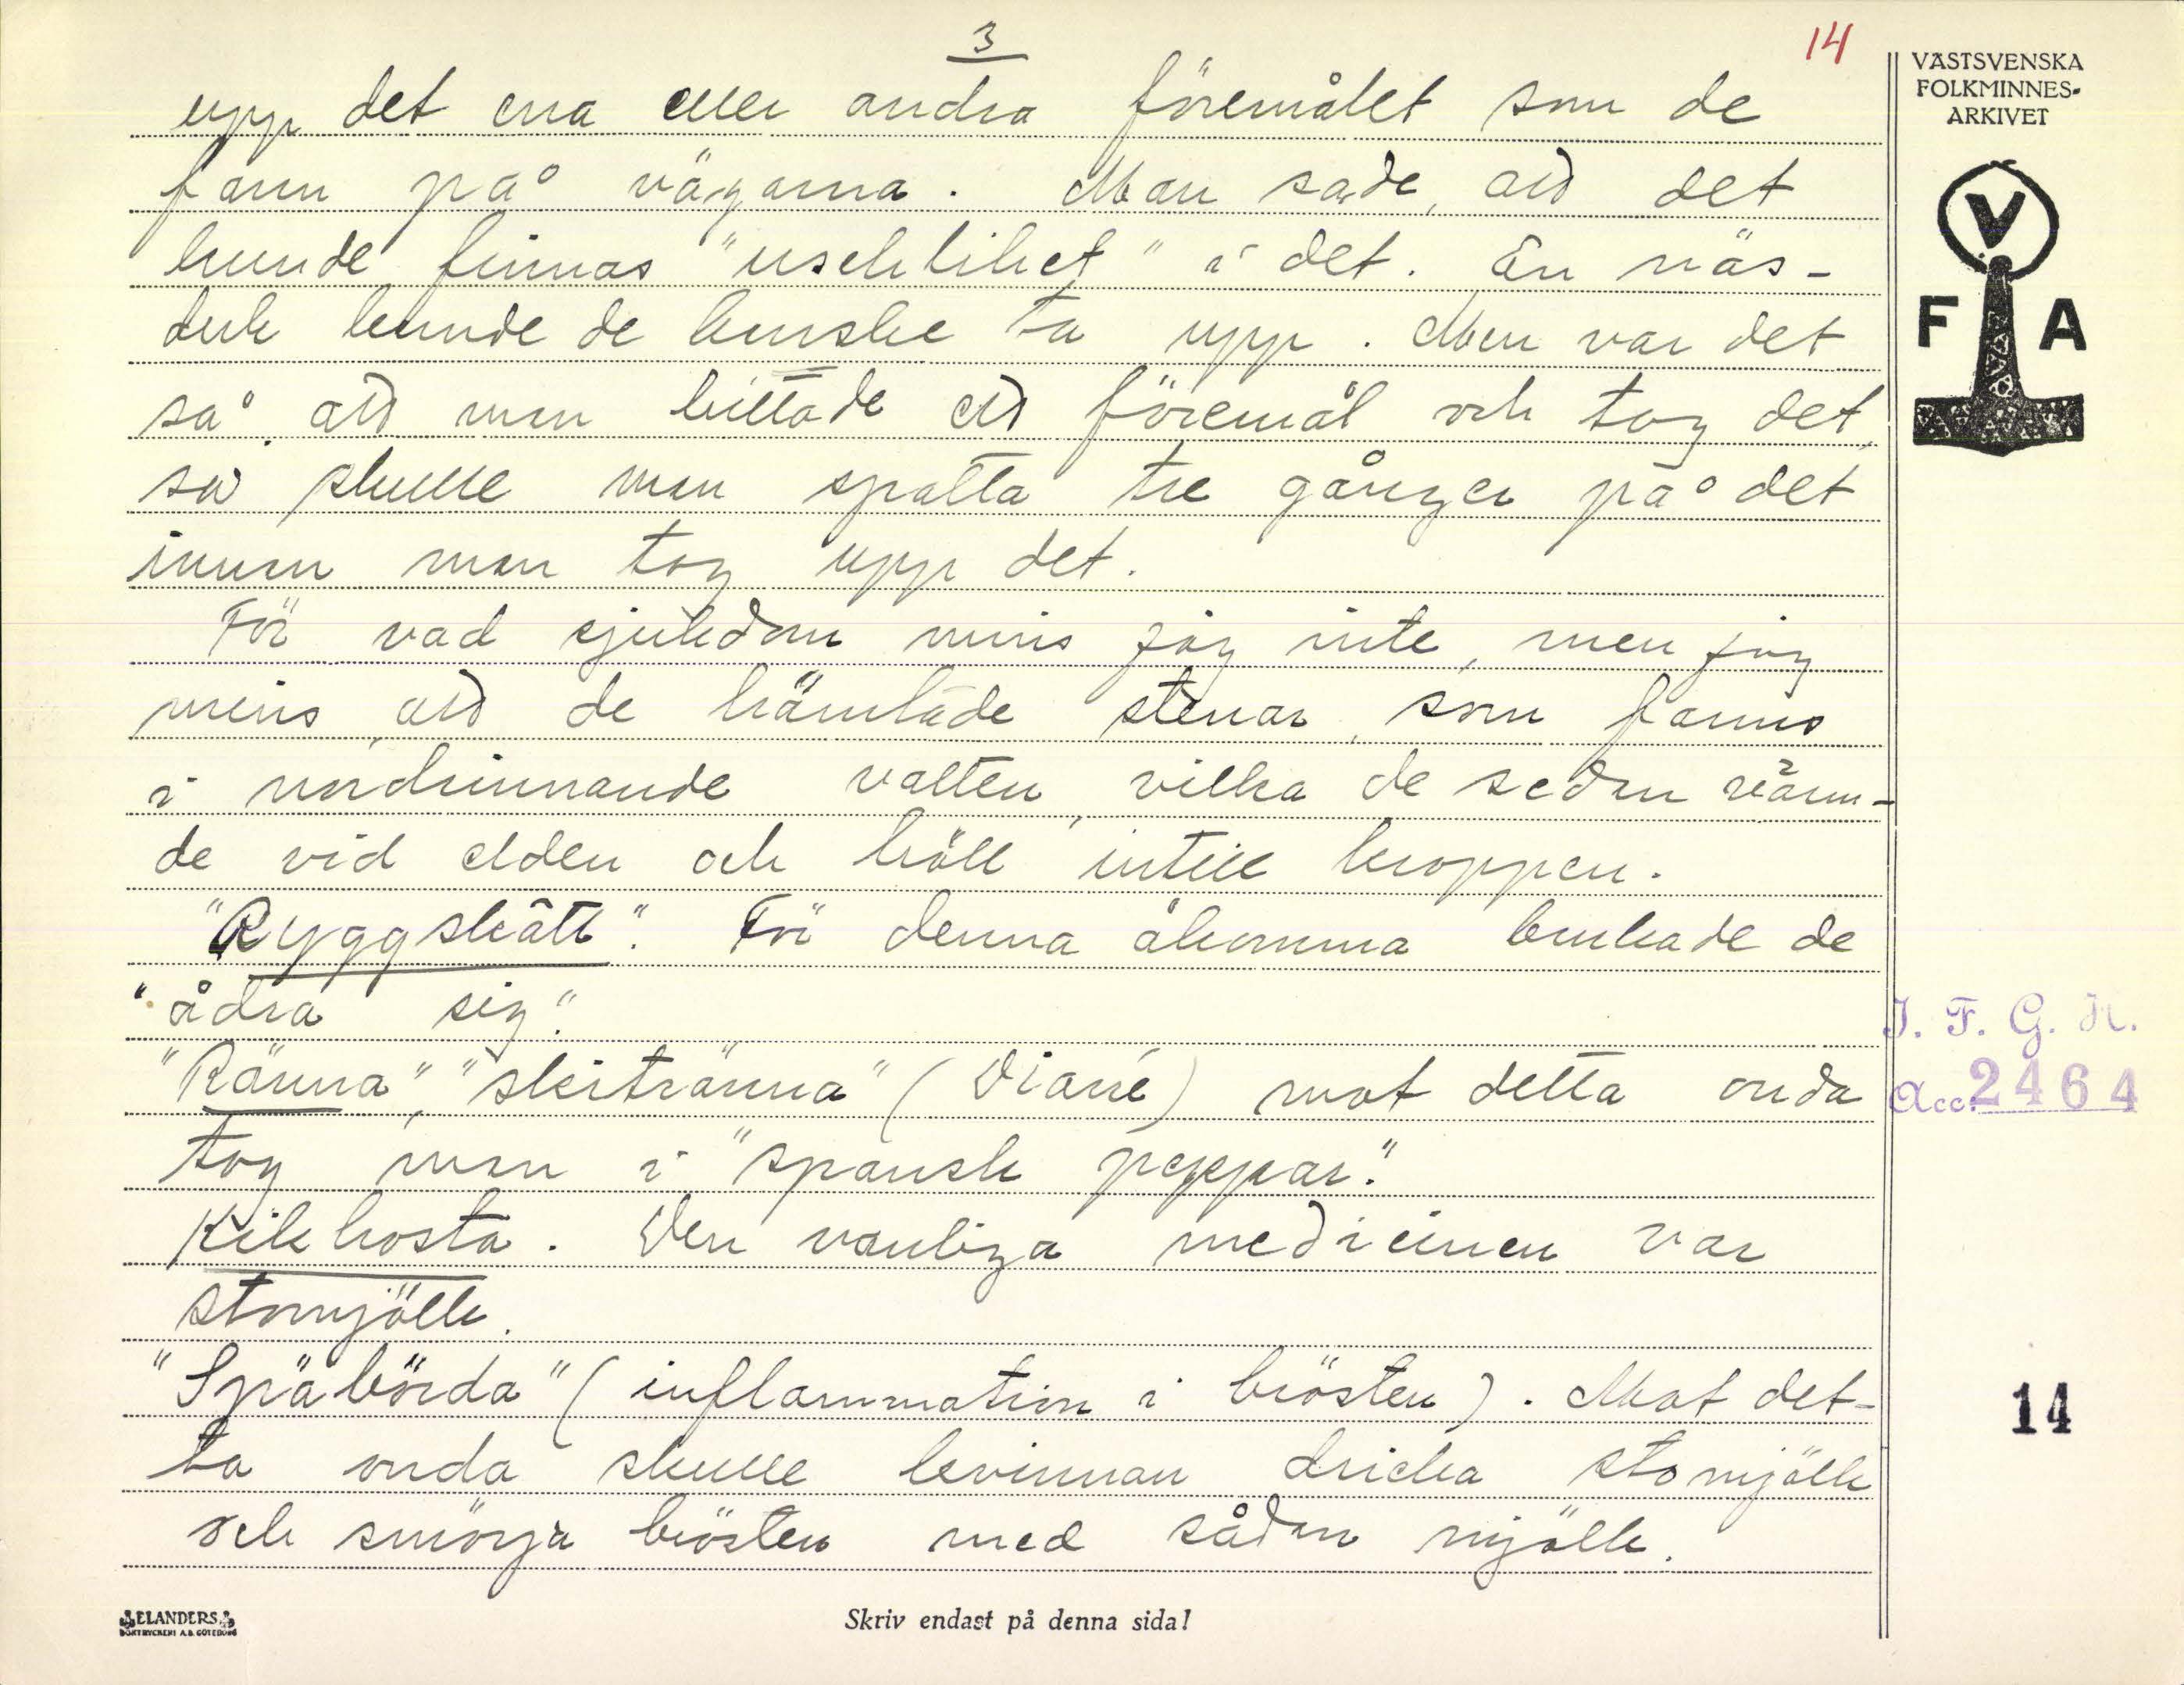 3
14
upp det ena eller andra föremålet som de
fann på vägarna. Man sade, att det
kunde finnas "usehlihet" i det. En näs-
duk kunde de kanske ta upp. Men var det
så att man hittade ett föremål och tog det,
så skulle man spotta tre gånger på det
innan man tog upp det.
För vad sjukdom mins jag inte, men jag
mins att de hämtade stenar, som fanns
i nordrinnande vatten, vilka de sedan värm-
de vid elden och höll intill kroppen.
"Ryggskått". För denna åkomma brukade de
"ådra sig".
"Ränna", "skitränna" (Diarré) mot detta onda
tog man i "spansk peppar".
Kikhosta. Den vanliga medicinen var
stomjölk.
"Späbörda" (inflammation i brösten). Mot det-
ta onda skulle kvinnan dricka stomjölk
och smörja brösten med sådan mjölk.
VÄSTSVENSKA
FOLKMINNES-
ARKIVET
V
F A
I. F. G. H.
Acc. 2464
14
ELANDERS
BOKTRYCKERI A.B. GÖTEBORG
Skriv endast på denna sida!